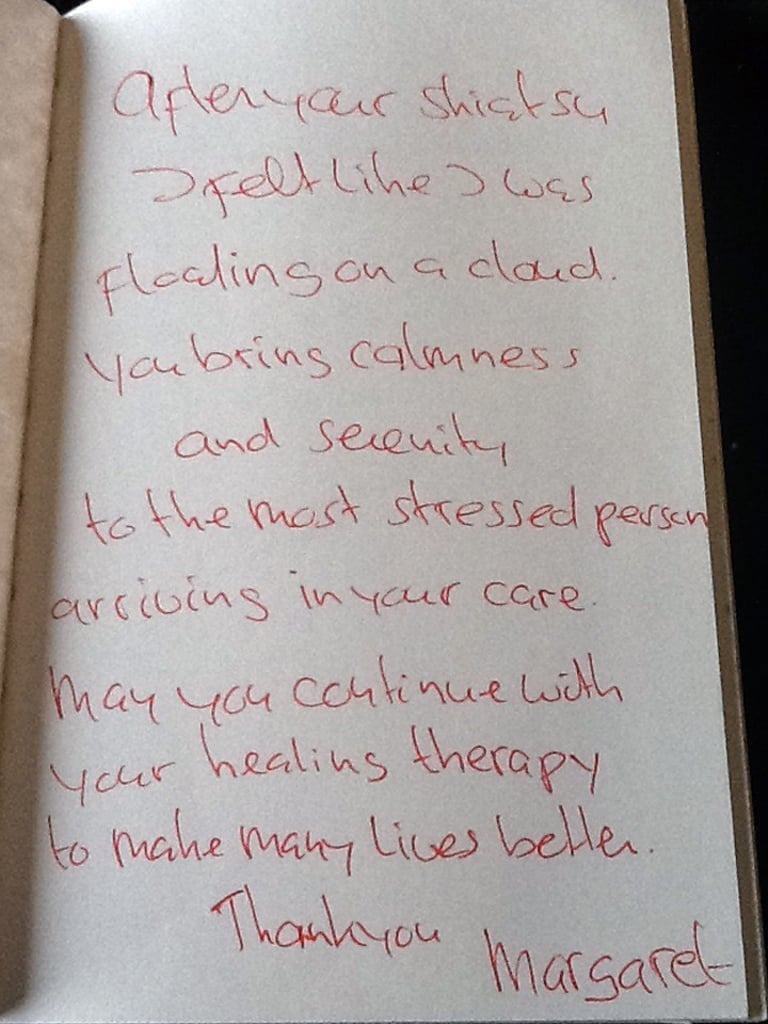 After your shiatsu
I felt like I was
floating on a cloud.
You bring calmness
and serenity
to the most stressed person
arriving in your care.
May you continue with
your healing therapy
to make many lives better.
Thankyou
Margaret